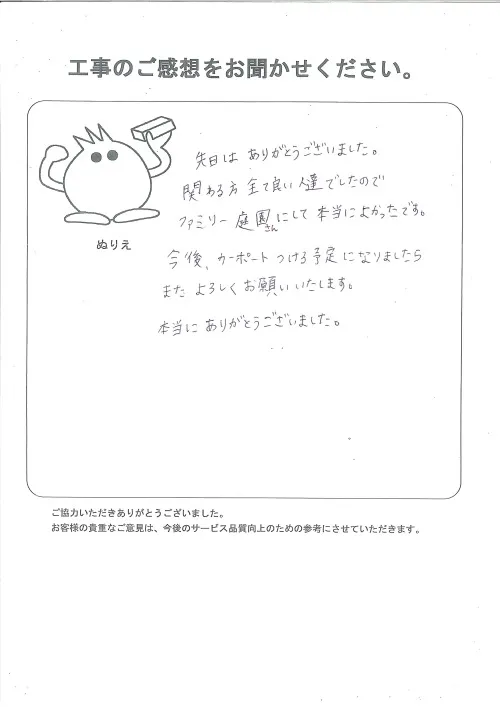 工事のご感想をお聞かせください。
先日は ありがとうございました。
関わる方 全て良い人達でしたので
ファミリー庭園さんにして 本当によかったです。
今後、カーポート つける予定になりましたら
また よろしくお願いいたします。
本当に ありがとうございました。
ぬりえ
ご協力いただきありがとうございました。
お客様の貴重なご意見は、今後のサービス品質向上のための参考にさせていただきます。